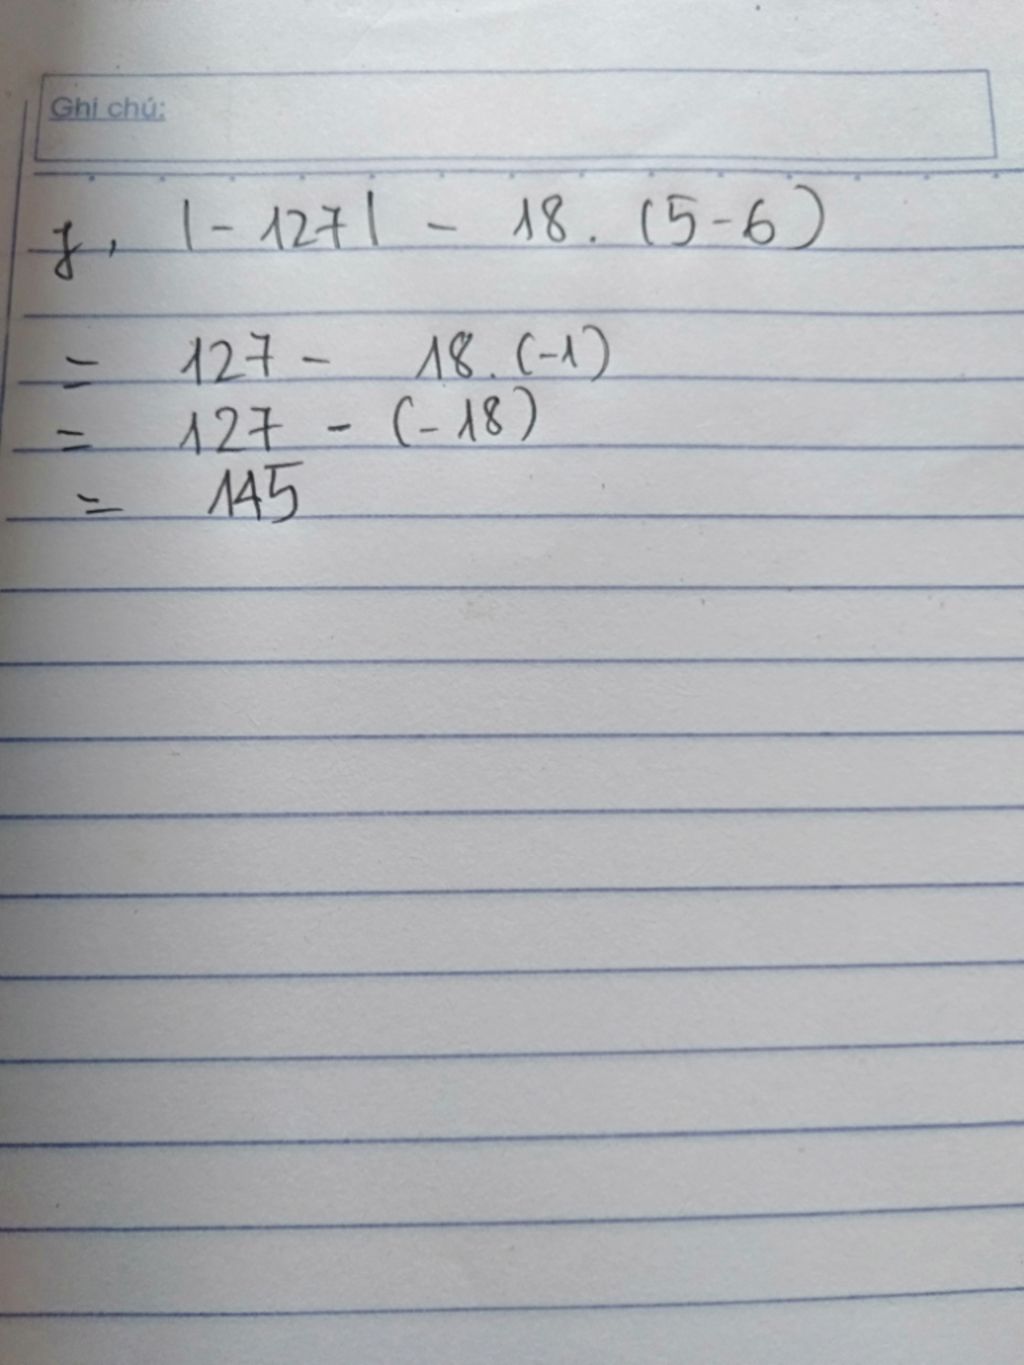 Ghi chú:
f, |-127| - 18. (5-6)
= 127 - 18. (-1)
= 127 - (-18)
= 145